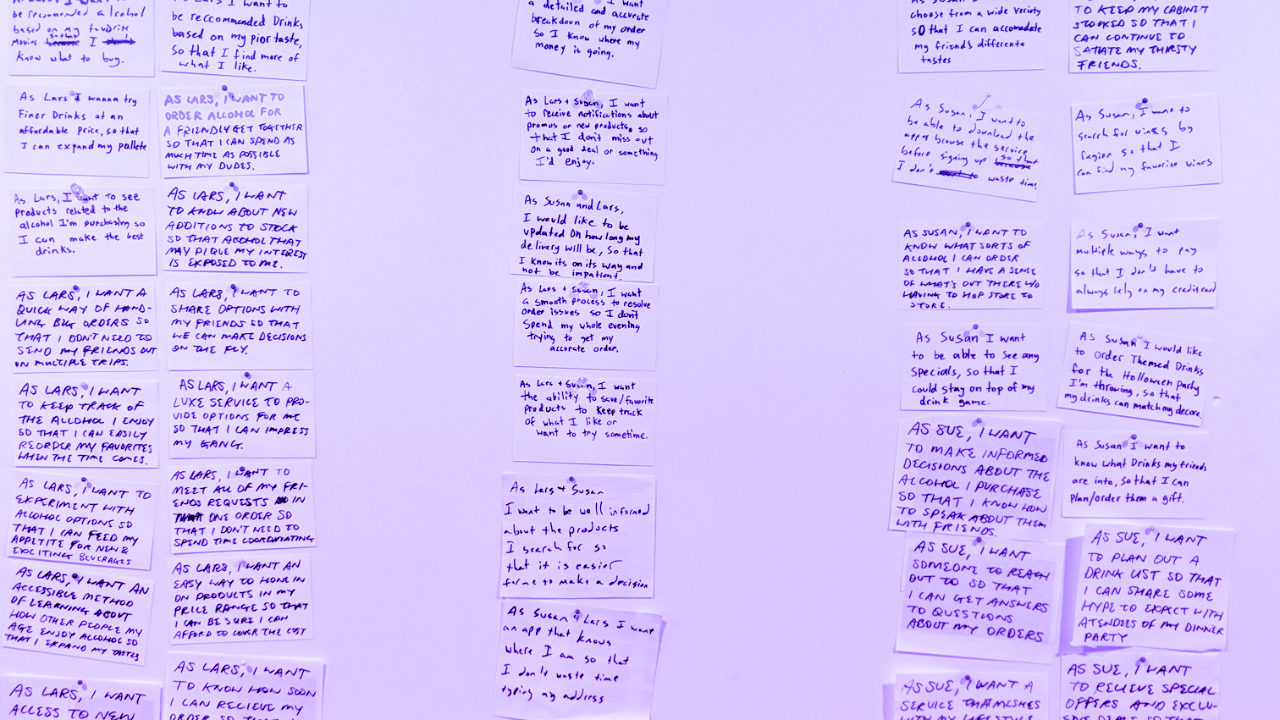 be recommended alcohol
based on my favorite
movies I
know what to buy.
As Lars I wanna try
Finer Drinks at an
affordable price, so that
I can expand my pallete
As Lars, I want to see
products related to the
alcohol I'm purchasing so
I can make the best
drinks.
AS LARS, I WANT A
QUICK WAY OF HAND-
LING BIG ORDERS SO
THAT I DON'T NEED TO
SEND MY FRIENDS OUT
ON MULTIPLE TRIPS.
AS LARS, I WANT
TO KEEP TRACK OF
THE ALCOHOL I ENJOY
SO THAT I CAN EASILY
REORDER MY FAVORITES
WHEN THE TIME COMES.
AS LARS, I WANT TO
EXPERIMENT WITH
ALCOHOL OPTIONS SO
THAT I CAN FEED MY
APPETITE FOR NEW &
EXCITING BEVERAGES
AS LARS, I WANT AN
ACCESSIBLE METHOD
OF LEARNING ABOUT
HOW OTHER PEOPLE MY
AGE ENJOY ALCOHOL SO
THAT I EXPAND MY TASTES
AS LARS, I WANT
ACCESS TO NEW
I want to
be reccommended Drinks
based on my pior taste,
so that I find more of
what I like.
AS LARS, I WANT TO
ORDER ALCOHOL FOR
A FRIENDLY GET TOGETHER
SO THAT I CAN SPEND AS
MUCH TIME AS POSSIBLE
WITH MY DUDES.
AS LARS, I WANT
TO KNOW ABOUT NEW
ADDITIONS TO STOCK
SO THAT ALCOHOL THAT
MAY PIQUE MY INTEREST
IS EXPOSED TO ME.
AS LARS, I WANT TO
SHARE OPTIONS WITH
MY FRIENDS SO THAT
WE CAN MAKE DECISIONS
ON THE FLY.
AS LARS, I WANT A
LUXE SERVICE TO PRO-
VIDE OPTIONS FOR ME
SO THAT I CAN IMPRESS
MY GANG.
AS LARS, I WANT TO
MEET ALL OF MY FRI-
ENDS REQUESTS IN
ONE ORDER SO
THAT I DON'T NEED TO
SPEND TIME COORDINATING
AS LARS, I WANT AN
EASY WAY TO HONE IN
ON PRODUCTS IN MY
PRICE RANGE SO THAT
I CAN BE SURE I CAN
AFFORD TO COVER THE COST
AS LARS, I WANT
TO KNOW HOW SOON
I CAN RECIEVE MY
ORDER SO THAT
I want
a detailed and accurate
breakdown of my order
so I know where my
money is going.
As Lars + Susan, I want
to receive notifications about
promos or new products, so
that I don't miss out
on a good deal or something
I'd enjoy.
As Susan and Lars,
I would like to be
updated on how long my
delivery will be, so that
I know its on its way and
not be impatient.
As Lars + Susan, I want
a smooth process to resolve
order issues so I don't
spend my whole evening
trying to get my
accurate order.
As Lars + Susan, I want
the ability to save/favorite
products to keep track
of what I like or
want to try sometime.
As Lars + Susan
I want to be well informed
about the products
I search for so
that it is easier
for me to make a decision
As Susan & Lars I want
an app that knows
where I am so that
I don't waste time
typing my address
As Susan I want to
choose from a wide variety
so that I can accomodate
my friends differente
tastes
As Susan, I want to
be able to download the
app & browse the service
before signing up
I don't waste time.
AS SUSAN, I WANT TO
KNOW WHAT SORTS OF
ALCOHOL I CAN ORDER
SO THAT I HAVE A SENSE
OF WHAT'S OUT THERE W/O
HAVING TO HOP STORE TO
STORE.
As Susan I want
to be able to see any
specials, so that I
could stay on top of my
drink game.
AS SUE, I WANT
TO MAKE INFORMED
DECISIONS ABOUT THE
ALCOHOL I PURCHASE
SO THAT I KNOW HOW
TO SPEAK ABOUT THEM
WITH FRIENDS.
AS SUE, I WANT
SOMEONE TO REACH
OUT TO SO THAT
I CAN GET ANSWERS
TO QUESTIONS
ABOUT MY ORDERS
AS SUE, I WANT A
SERVICE THAT MESHES
WITH MY LIFESTYLE
TO KEEP MY CABINT
STOCKED SO THAT I
CAN CONTINUE TO
SATIATE MY THIRSTY
FRIENDS.
As Susan, I want to
search for wines by
region so that I
can find my favorite wines
As Susan, I want
multiple ways to pay
so that I don't have to
always rely on my credit card
As Susan I would like
to order Themed Drinks
for the Holloween party
I'm throwing, so that
my drinks can match my decore
As Susan I want to
know what Drinks my friends
are into, so that I can
plan/order them a gift.
AS SUE, I WANT
TO PLAN OUT A
DRINK LIST SO THAT
I CAN SHARE SOME
HYPE TO EXPECT WITH
ATENDEES OF MY DINNER
PARTY
AS SUE, I WANT
TO RECIEVE SPECIAL
OFFERS AND EXCLU-
SIVE DEALS SO THAT